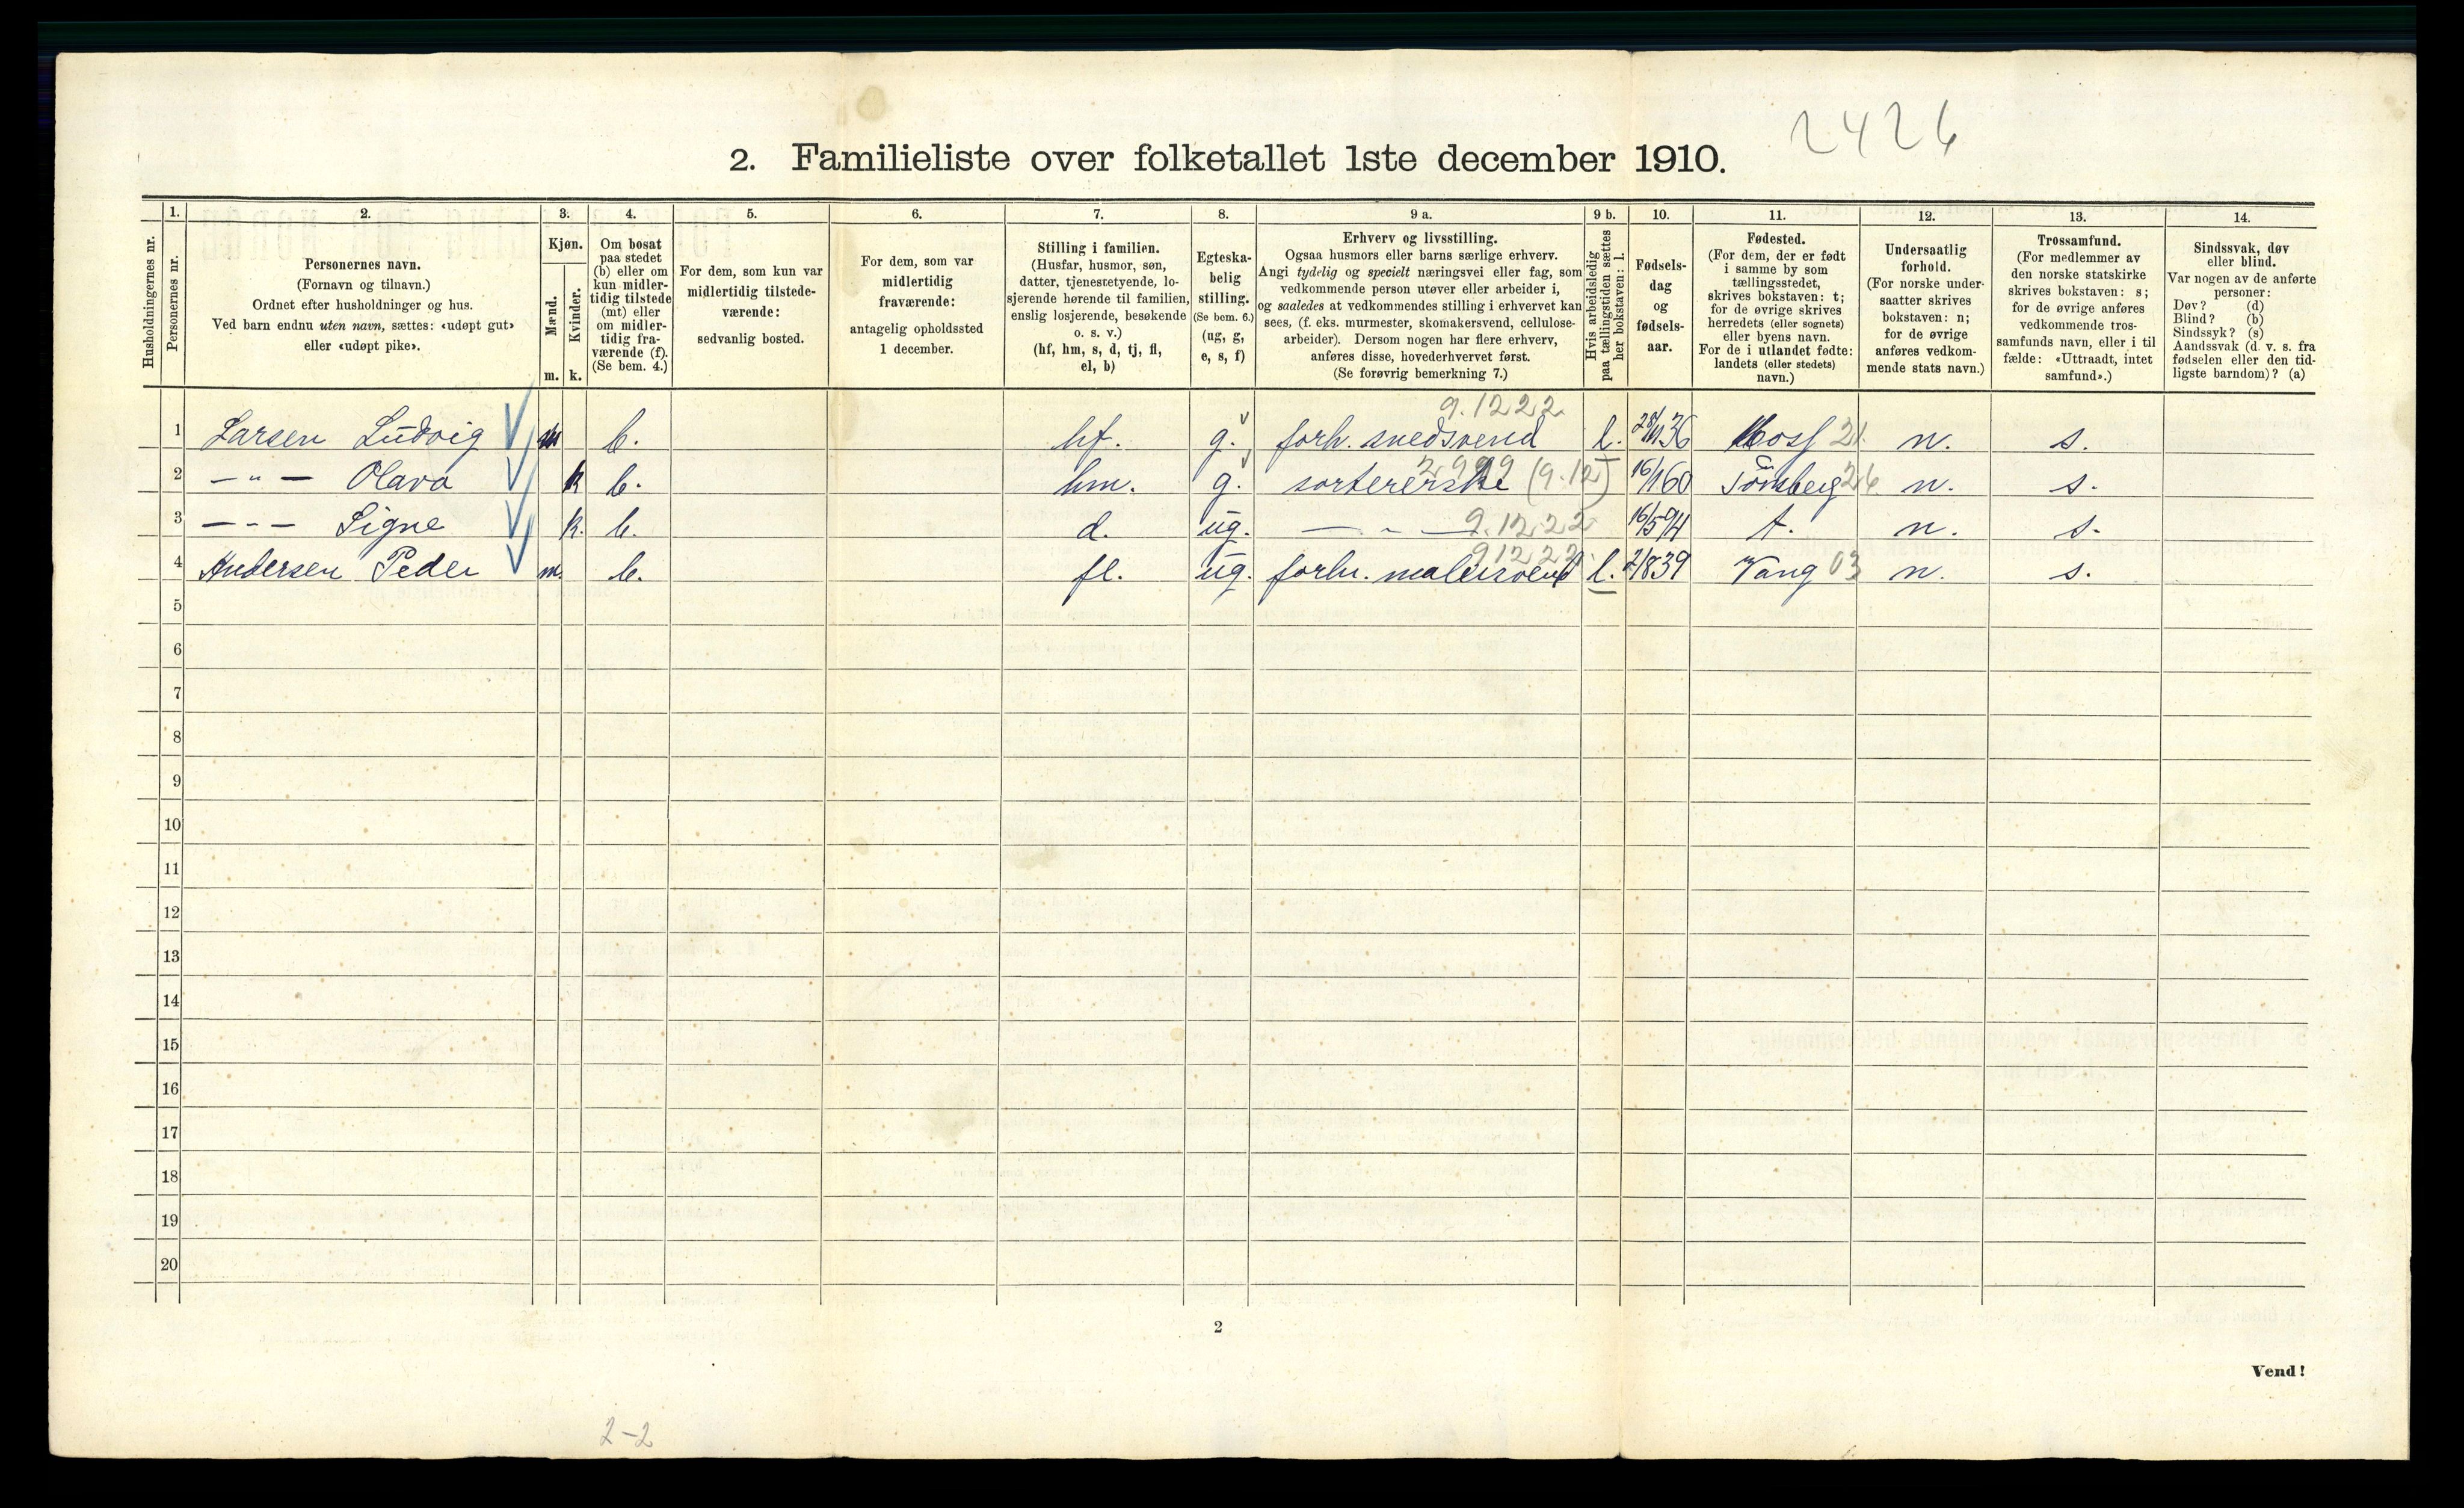 2426
2. Familieliste over folketallet 1ste december 1910.
Husholdningernes nr.
1.
Personernes nr.
2.
Personernes navn.
(Fornavn og tilnavn.)
Ordnet efter husholdninger og hus.
Ved barn endnu uten navn, sættes: «udøpt gut»
eller «udøpt pike».
3.
Kjøn.
Mænd.
Kvinder.
m. k.
4.
Om bosat
paa stedet
(b) eller om
kun midler-
tidig tilstede
(mt) eller
om midler-
tidig fra-
værende (f).
(Se bem. 4.)
5.
For dem, som kun var
midlertidig tilstede-
værende:
sedvanlig bosted.
6.
For dem, som var
midlertidig
fraværende:
antagelig opholdssted
1 december.
7.
Stilling i familien.
(Husfar, husmor, søn,
datter, tjenestetyende, lo-
sjerende hørende til familien,
enslig losjerende, besøkende
o. s. v.)
(hf, hm, s, d, tj, fl,
el, b)
8.
Egteska-
belig
stilling.
(Se bem. 6.)
(ug, g,
e, s, f)
9 a.
Erhverv og livsstilling.
Ogsaa husmors eller barns særlige erhverv.
Angi tydelig og specielt næringsvei eller fag, som
vedkommende person utøver eller arbeider i,
og saaledes at vedkommendes stilling i erhvervet kan
sees, (f. eks. murmester, skomakersvend, cellulose-
arbeider). Dersom nogen har flere erhverv,
anføres disse, hovederhvervet først.
(Se forøvrig bemerkning 7.)
9 b.
Hvis arbeidsledig
paa tællingstiden sættes
her bokstaven: l.
10.
Fødsels-
dag
og
fødsels-
aar.
11.
Fødested.
(For dem, der er født
i samme by som
tællingsstedet,
skrives bokstaven: t;
for de øvrige skrives
herredets (eller sognets)
eller byens navn.
For de i utlandet fødte:
landets (eller stedets)
navn.)
12.
Undersaatlig
forhold.
(For norske under-
saatter skrives
bokstaven: n;
for de øvrige
anføres vedkom-
mende stats navn.)
13.
Trossamfund.
(For medlemmer av
den norske statskirke
skrives bokstaven: s;
for de øvrige anføres
vedkommende tros-
samfunds navn, eller i til
fælde: «Uttraadt, intet
samfund».)
14.
Sindssvak, døv
eller blind.
Var nogen av de anførte
personer:
Døv? (d)
Blind? (b)
Sindssyk? (s)
Aandssvak (d. v. s. fra
fødselen eller den tid-
ligste barndom)? (a)
9.1222
1 Larsen Ludvig m b. hf. g. forh. snedsvend l. 36 Moss 21 n. s.
2999
2 — " — Olava k b. hm. g. sortererske (9.12) 16/1 60 Tönsberg 26 n. s.
3 — - — Signe k. b. d. ug. — - — 9.1222 16/5 94 t. n. s.
91222
4 Andersen Peder m. b. fl. ug. forh. malersvend l. 2/8 39 Vang 03 n. s.
5
6
7
8
9
10
11
12
13
14
15
16
17
18
19
20
2
Vend!
2-2